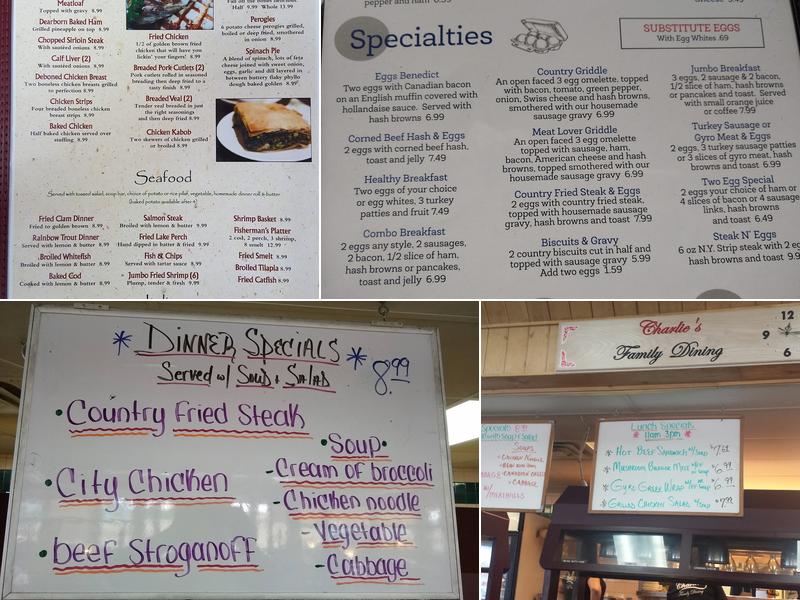 Meatloaf
Topped with gravy 8.99
Dearborn Baked Ham
Grilled pineapple on top 8.99
Chopped Sirloin Steak
With sautéed onions 8.99
Calf Liver (2)
With sautéed onions 8.99
Deboned Chicken Breast
Two boneless chicken breasts grilled
to perfection 8.99
Chicken Strips
Four breaded boneless chicken
breast strips 8.99
Baked Chicken
Half baked chicken served over
stuffing 8.99
Fried Chicken
1/2 of golden brown fried
chicken that will have you
lickin' your fingers! 8.99
Breaded Pork Cutlets (2)
Pork cutlets rolled in seasoned
breading then deep fried to a
tasty finish 8.99
Breaded Veal (2)
Tender veal breaded in just
the right seasonings
and then deep fried 8.99
Chicken Kabob
Two skewers of chicken grilled
or broiled 8.99
Half 9.99 Whole 13.99
Perogies
6 potato cheese perogies grilled,
boiled or deep fried, smothered
in onion 8.99
Spinach Pie
A blend of spinach, lots of feta
cheese joined with sweet onion,
eggs, garlic and dill layered in
between buttery flaky phyllo
dough baked golden 8.99
Seafood
Served with tossed salad, soup bar, choice of potato or rice pilaf, vegetable, homemade dinner roll & butter
(baked potato available after 4)
Fried Clam Dinner
Fried to golden brown 8.99
Rainbow Trout Dinner
Served with lemon & butter 8.99
Broiled Whitefish
Broiled with lemon & butter 8.99
Baked God
Cooked with lemon & butter 8.99
Salmon Steak
Broiled with lemon & butter 9.99
Fried Lake Perch
Hand dipped in batter & fried 9.99
Fish & Chips
Served with tartar sauce 8.99
Jumbo Fried Shrimp (6)
Plump, tender & fresh 9.99
Shrimp Basket 8.99
Fisherman's Platter
2 cod, 2 perch, 3 shrimp,
8 smelt 12.99
Fried Smelt 8.99
Broiled Tilapia 8.99
Fried Catfish 8.99
Specialties
SUBSTITUTE EGGS
With Egg Whites .69
Eggs Benedict
Two eggs with Canadian bacon
on an English muffin covered with
hollandaise sauce. Served with
hash browns 6.99
Corned Beef Hash & Eggs
2 eggs with corned beef hash,
toast and jelly 7.49
Healthy Breakfast
Two eggs of your choice
or egg whites, 3 turkey
patties and fruit 7.49
Combo Breakfast
2 eggs any style, 2 sausages,
2 bacon, 1/2 slice of ham,
hash browns or pancakes,
toast and jelly 6.99
Country Griddle
An open faced 3 egg omelette, topped
with bacon, tomato, green pepper,
onion, Swiss cheese and hash browns,
smothered with our housemade
sausage gravy 6.99
Meat Lover Griddle
An open faced 3 egg omelette
topped with sausage, ham,
bacon, American cheese and hash
browns, topped smothered with our
housemade sausage gravy 6.99
Country Fried Steak & Eggs
2 eggs with country fried steak,
topped with housemade sausage
gravy, hash browns and toast 7.99
Biscuits & Gravy
2 country biscuits cut in half and
topped with sausage gravy 5.99
Add two eggs 1.59
Jumbo Breakfast
3 eggs, 2 sausage & 2 bacon,
1/2 slice of ham, hash browns
or pancakes and toast. Served
with small orange juice
or coffee 7.99
Turkey Sausage or
Gyro Meat & Eggs
2 eggs, 3 turkey sausage patties
or 3 slices of gyro meat, hash
browns and toast 6.99
Two Egg Special
2 eggs your choice of ham or
4 slices of bacon or 4 sausage
links, hash browns
and toast 6.49
Steak N' Eggs
6 oz N.Y. Strip steak with 2 eg
hash browns and toast 9.9
* Dinner Specials *
Served w/ Soup & Salad
8.99
• Country Fried Steak
• City Chicken
• beef Stroganoff
• Soup •
- Cream of broccoli
- Chicken noodle
- Vegetable
- Cabbage
Charlie's
Family Dining
12
9
6
Soups
• Chicken Noodle
• Cabbage
Lunch Specials
11am 3pm
* Hot Beef Sandwich w/ Soup $7.61
* Mushroom Burger Melt w/ Soup $6.99
* Gyro Greek Wrap w/ Soup $6.99
* Grilled Chicken Salad w/ Soup $7.99